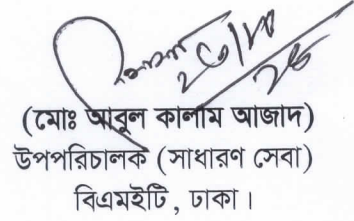 (মোঃ আবুল কালাম আজাদ)
উপপরিচালক (সাধারণ সেবা)
বিএমইটি, ঢাকা।